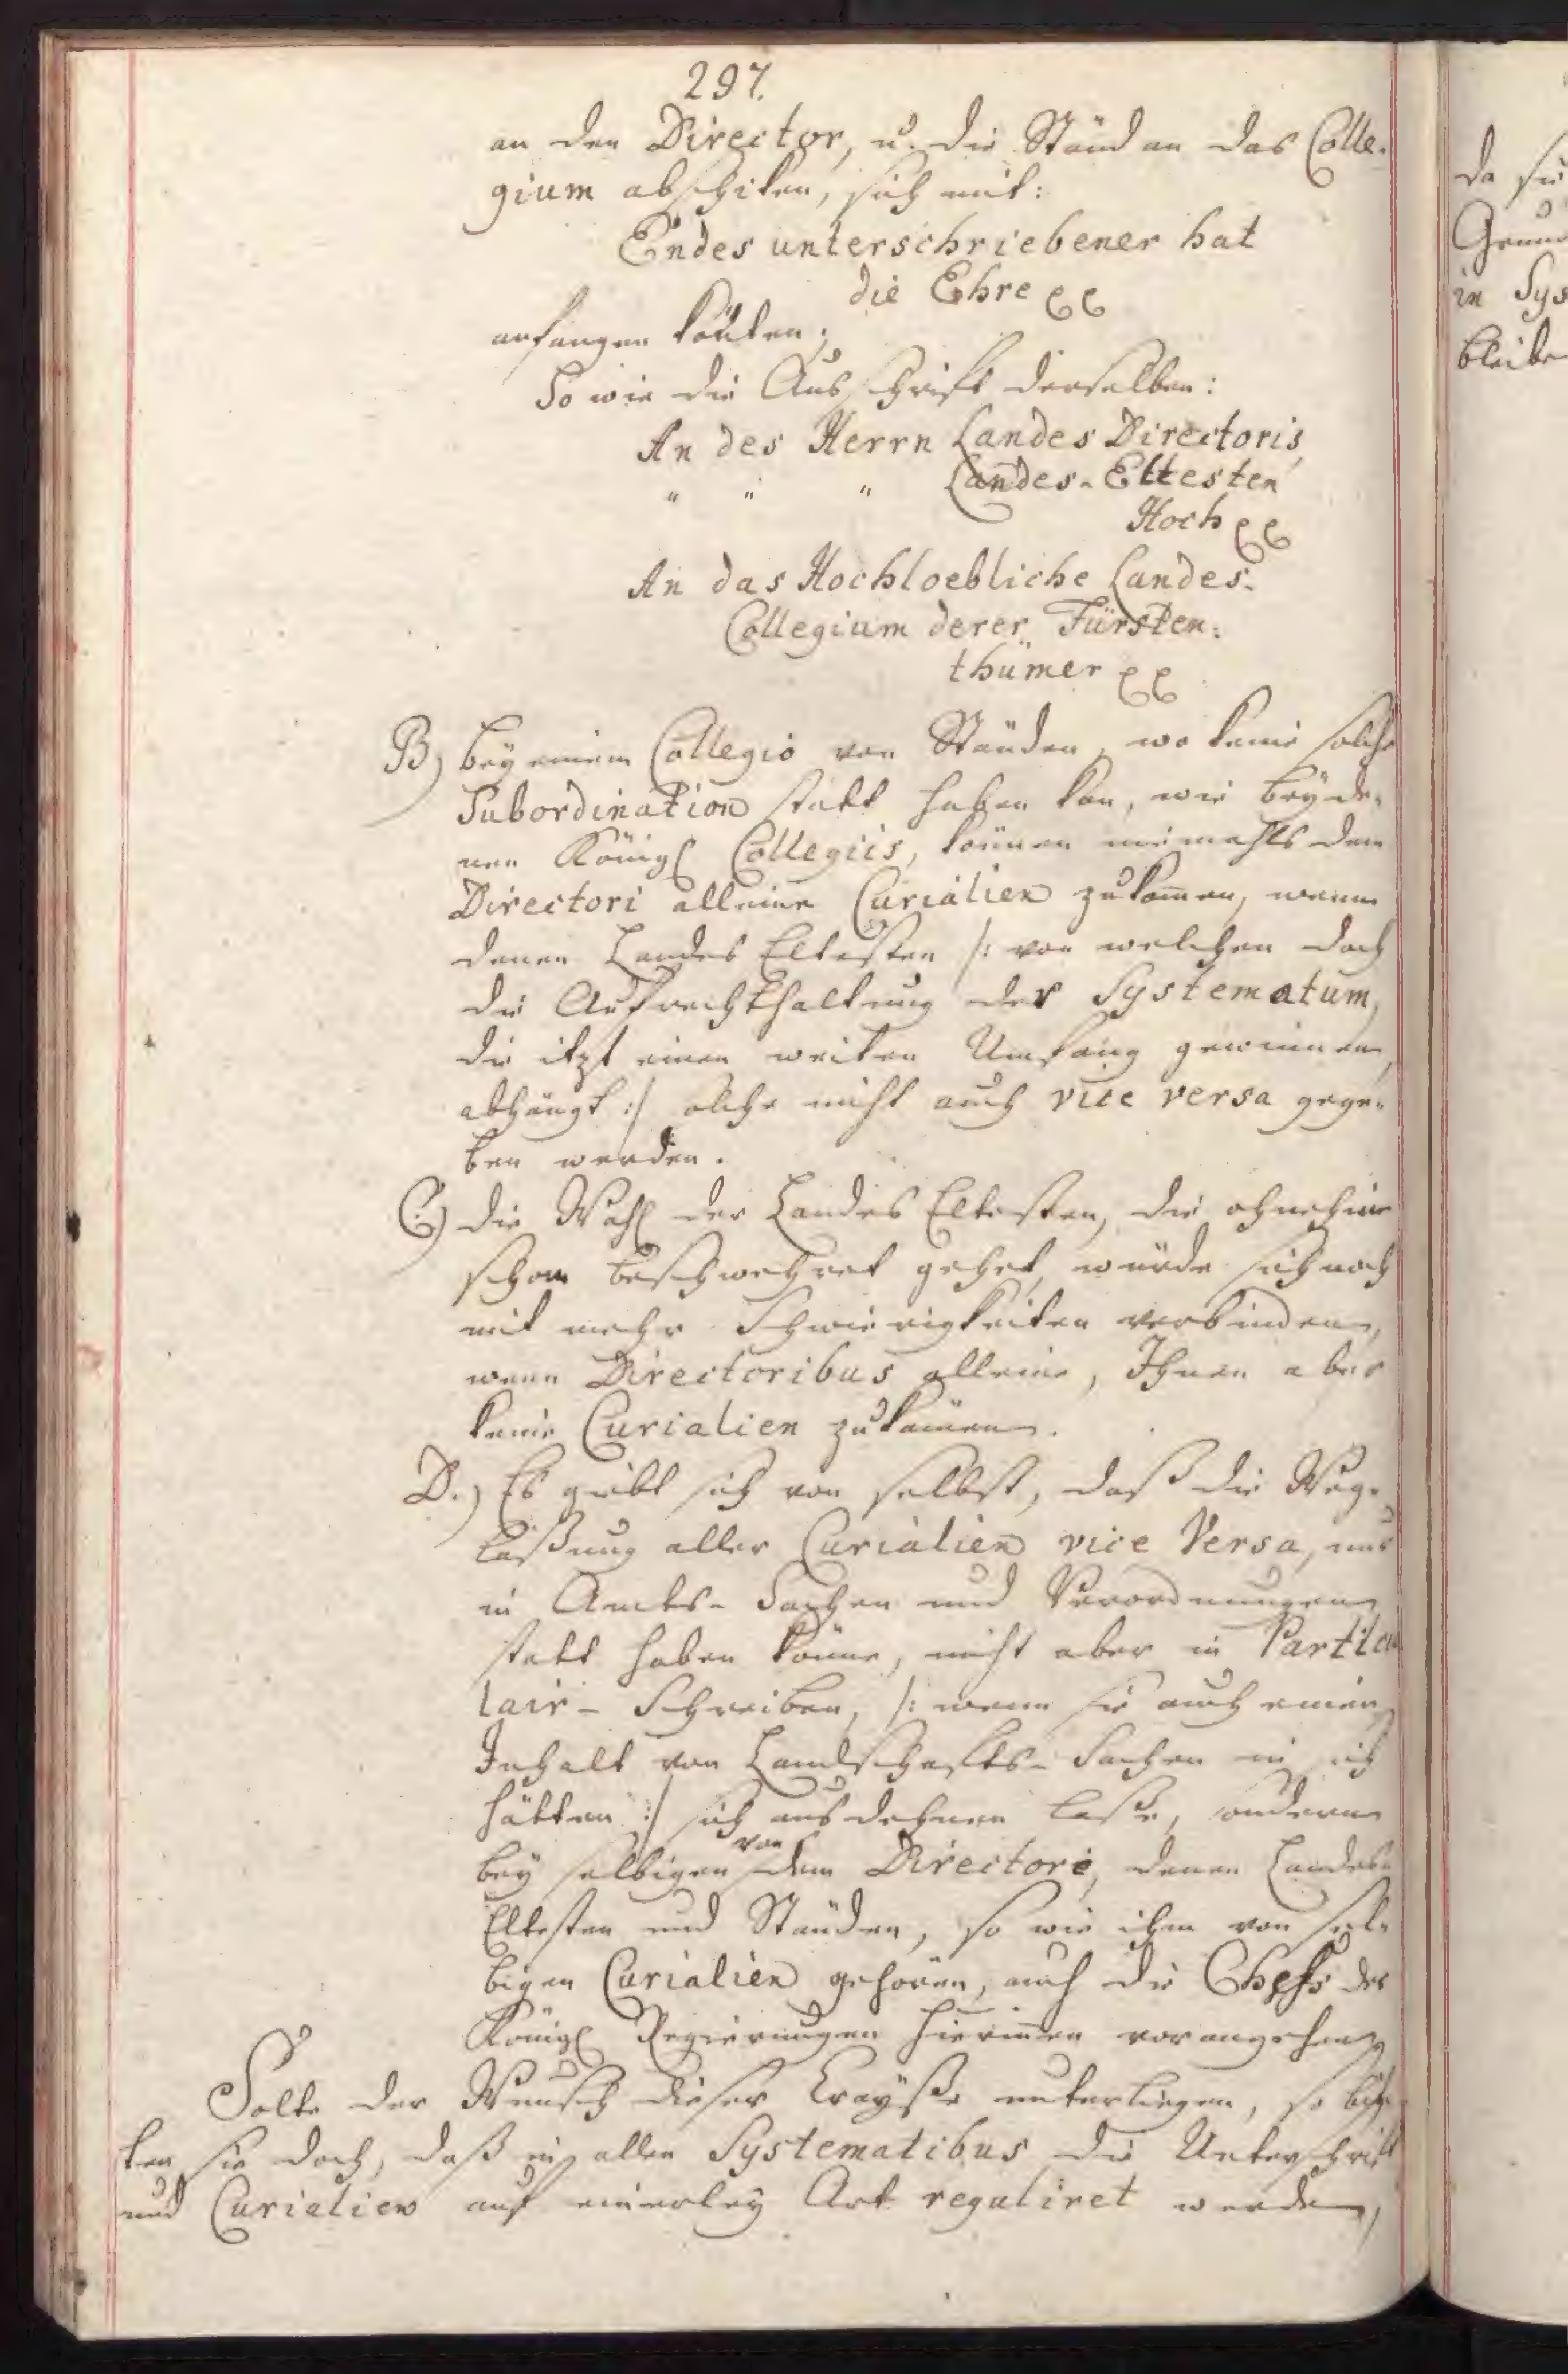 297.
an den Director, u. die Ständ an das Colle-
gium abschiken, sich mit:
Endes unterschriebener hat
die Ehre pp
anfangen könten;
So wie die Aufschrift derselben:
An des Herrn Landes Directoris,
" " " Landes-Eltesten
Hoch pp
An das Hochloebliche Landes-
Collegium derer Fürsten-
thümer pp
B) bey einem Collegio von Ständen, wo keine solche
Subordination statt haben kan, wie bey de-
nen Königl Collegiis, können niemahls dem
Directori alleine Curialien zukom̄en, wenn
denen Landes Eltesten /: von welchen doch
die Aufrechthaltung der Systematum,
die itzt einen weiten Umfang gewinnen,
abhängt :/ solche nicht auch vice versa gege-
ben werden.
C.) die Wahl der Landes Eltesten, die ohnehin
schon beschwehret gehet, würde sich noch
mit mehr Schwierigkeiten verbinden,
wenn Directoribus alleine, Ihnen aber
keine Curialien zukämen.
D.) Es giebt sich von selbst, daß die Weg-
laßung aller Curialien vice Versa, nur
in Amts-Sachen und Verordnungen
statt haben könne, nicht aber in Particu
lair-Schreiben, /: wenn sie auch einen
Inhalt von Landschafts-Sachen in sich
hätten :/ sich ausdehnen laße, sondern
bey selbigen von dem Directore, denen Landes-
Eltesten und Ständen, so wie ihm von sel-
bigen Curialien gehören, auch die Chefs der
Königl Regierungen hierin̄en vorangehen,
Solte der Wunsch dieser Crayße unterliegen, so bit-
ten sie doch, daß in allen Systematibus die Unterschrift
und Curialien auf einerley Art reguliret werden,
da
Grund
in Sys
bleibe